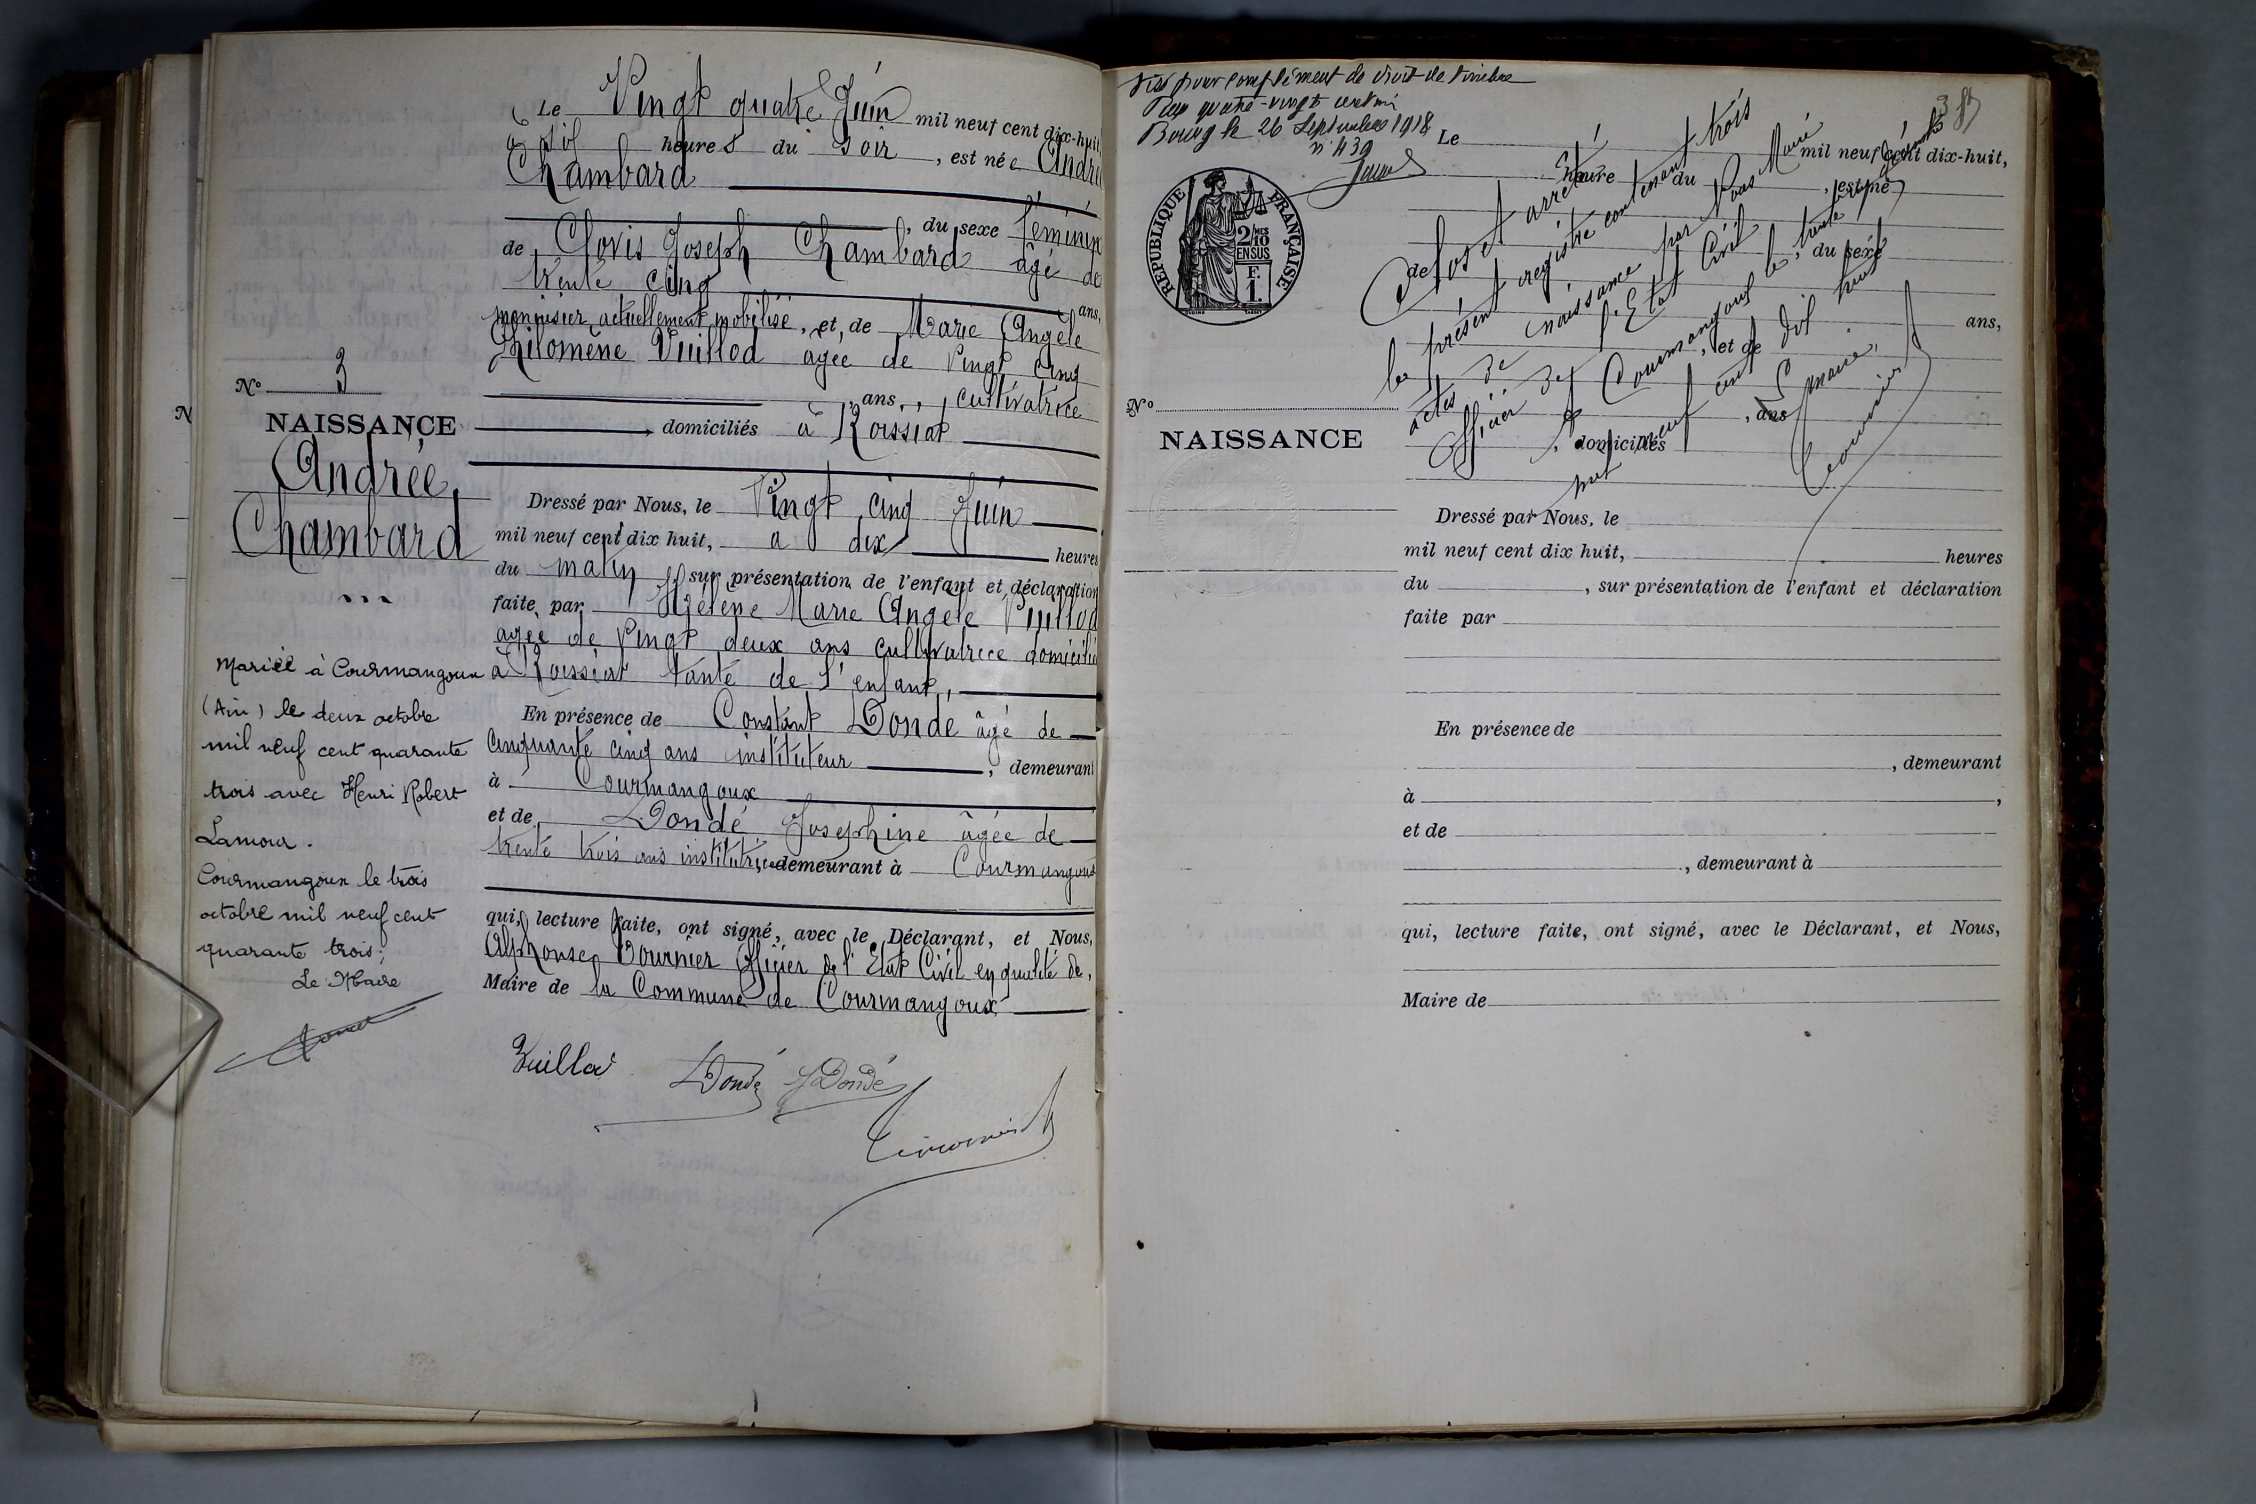 Le Vingt quatre Juin mil neuf cent dix-huit
à six heures du soir, est née André
Chambard
, du sexe féminin
de Clovis Joseph Chambard âgé de
trente cinq ans,
menuisier actuellement mobilisé, et de Marie Angèle
Philomène Vuillod âgée de vingt cinq
ans, cultivatrice
domiciliés à Roissiat
N° 3
NAISSANCE
Andrée
Chambard
Dressé par Nous, le Vingt cinq Juin
mil neuf cent dix huit, à dix heures
du matin, sur présentation de l'enfant et déclaration
faite par Hélène Marie Angèle Vuillod
agée de vingt deux ans cultivatrice domicilié
à Roissiat tante de l'enfant,
En présence de Constant Dondé âgé de
cinquante cinq ans instituteur, demeurant
à Courmangoux
et de Dondé Josephine âgée de
trente trois ans institutrice, demeurant à Courmangoux
qui, lecture faite, ont signé, avec le Déclarant, et Nous,
Alphonse Bournier Officier de l'Etat Civil en qualité de,
Maire de la Commune de Courmangoux
Vuillod Dondé J Dondé
Mariée à Courmangoux
(Ain) le deux octobre
mil neuf cent quarante
trois avec Henri Robert
Lamour.
Courmangoux le trois
octobre mil neuf cent
quarante trois;
Le Maire
N
Visé pour complément de droit de timbre
quatre-vingt
Bourg le 26 Septembre 1918
n° 439
REPUBLIQUE FRANÇAISE
2/10 MES
EN SUS
F.
1.
3
Clos et arrêté
le présent registre contenant trois
actes de naissance par Nous Maire
officier de l'Etat Civil
de Courmangoux le trente
mil neuf cent dix huit
Le maire,
Le mil neuf cent dix-huit,
heure du, est né
, du sexe
de
ans,
, et de
, ans
, domiciliés
N°
NAISSANCE
Dressé par Nous, le
mil neuf cent dix huit, heures
du, sur présentation de l'enfant et déclaration
faite par
En présence de
, demeurant
à,
et de
, demeurant à
qui, lecture faite, ont signé, avec le Déclarant, et Nous,
Maire de